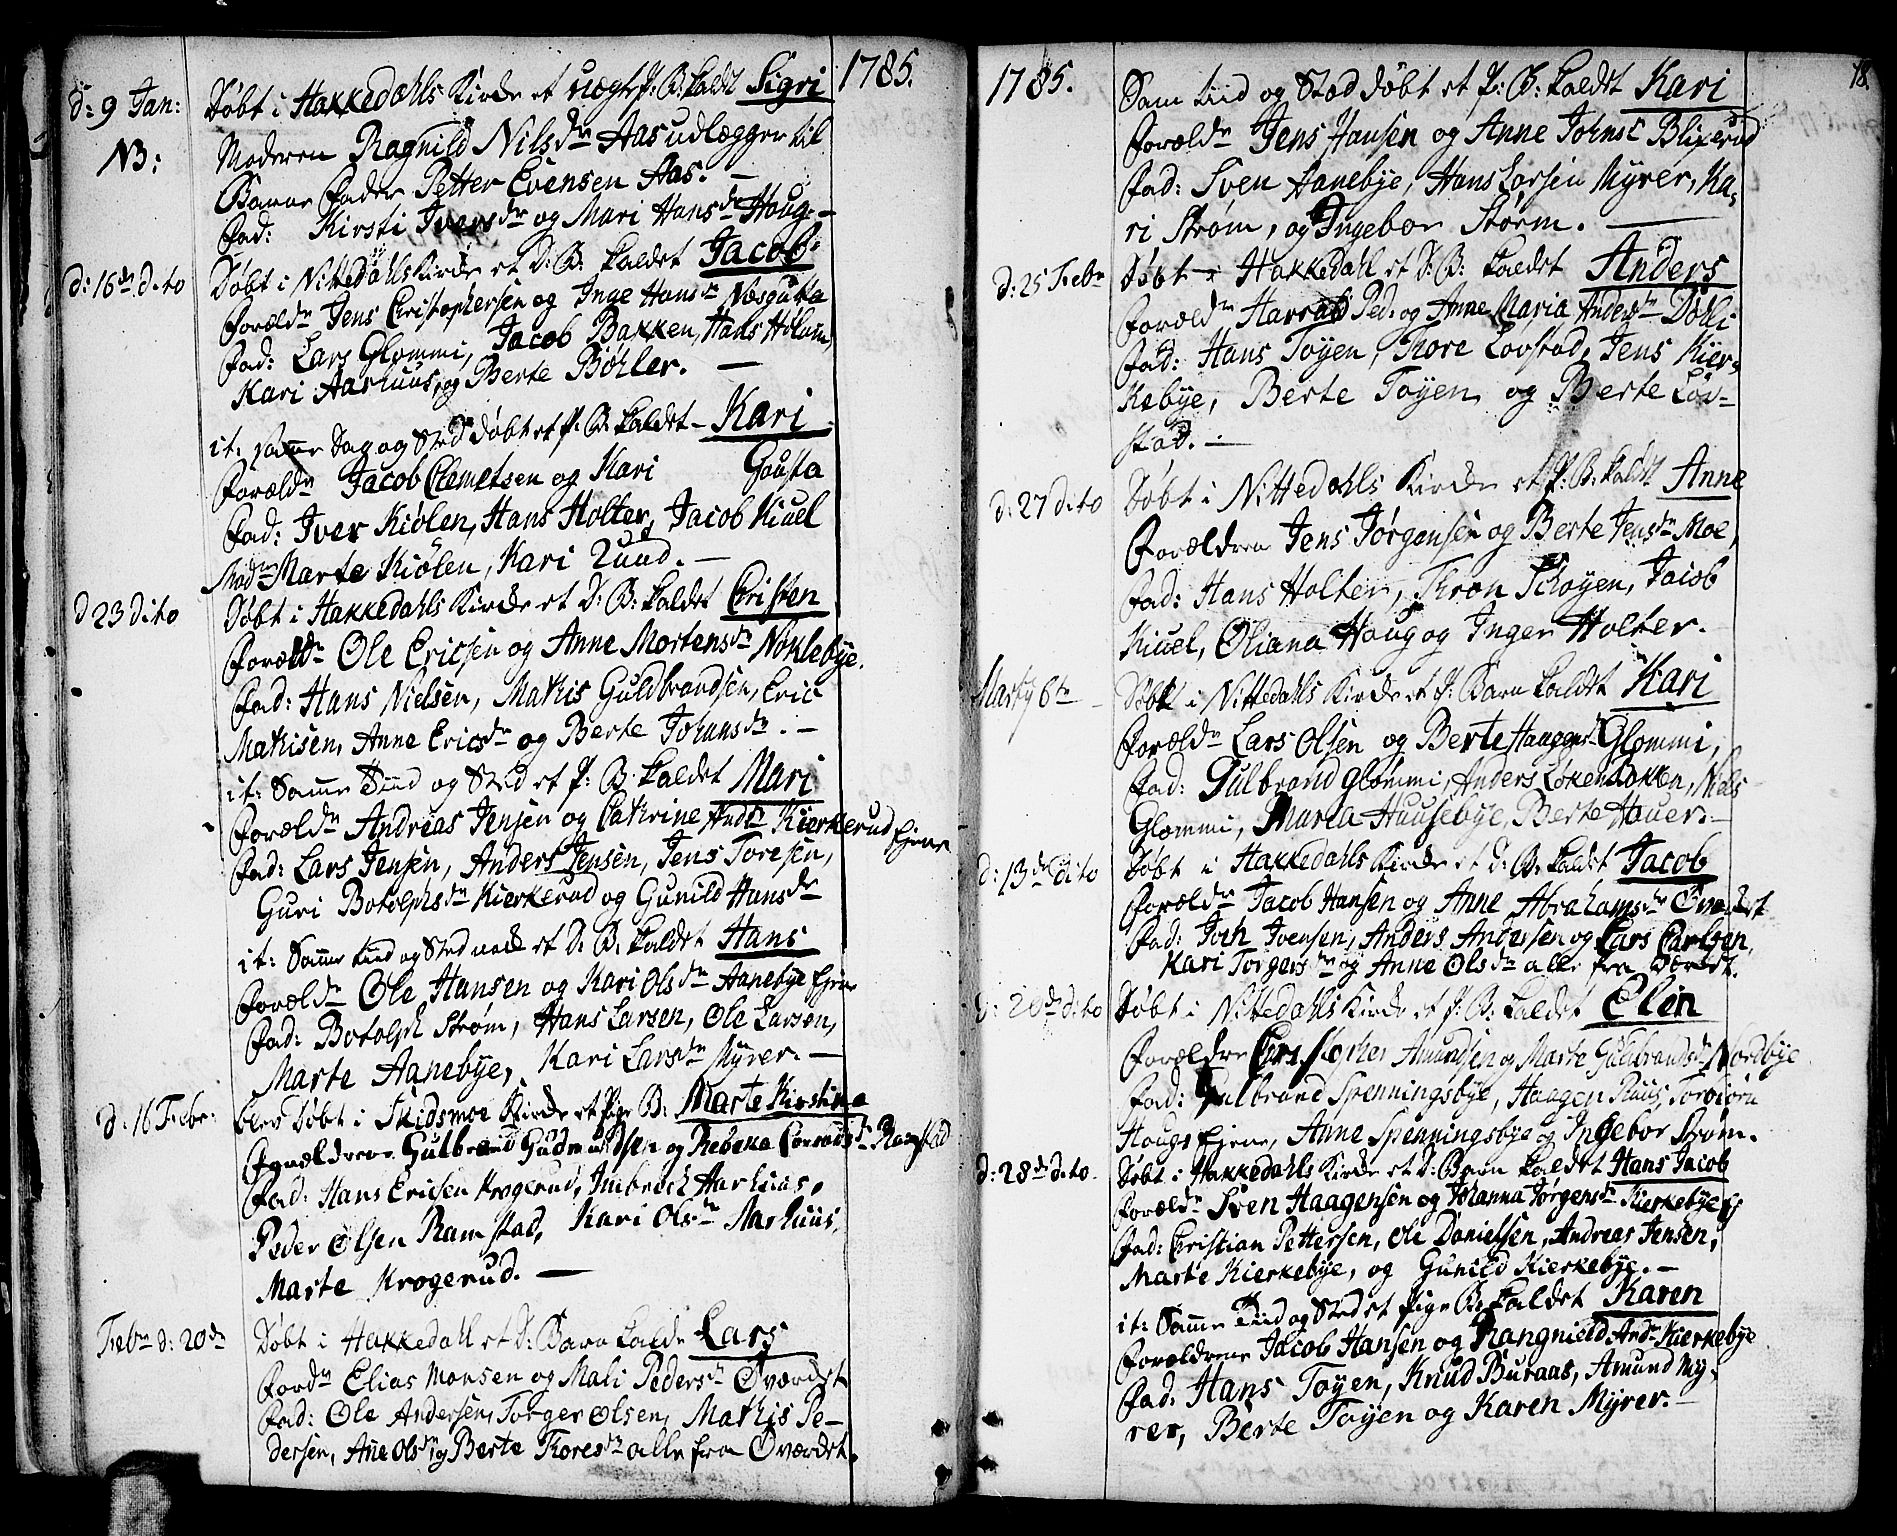 1785.
d: 9 Jan: Døbt i Hakkedahls Kirke et uægte P: B: kaldt Sigri
NB: Moderen Ragnild Nilsdr Aas udlægger til
Barne Fader Petter Evensen Aas. —
Fad: Kirsti Iversdr og Mari Hansdr Houg. —
d: 16de dito Døbt i Nittedahls Kirke et D: B: kaldet Jacob
Forældr Jens Christophersen og Inge Hansdr Næsgutta
Fad: Lars Glommi, Jacob Bakken, Hans Holum,
Kari Aarhuus, og Berte Böhler. —
it: samme Dag og Sted døbt et P: B: kaldet Kari
Forældr Jacob Clemetsen og Kari Gousta
Fad: Iver Kiölen, Hans Holter, Jacob Kiuel
Modr Marte Kiölen, Kari Ruud. —
d 23 dito Døbt i Hakkedahls Kirke et D: B: kaldet Cristen
Forældr Ole Ericsen og Anne Mortensdr Nöklebye.
Fad: Hans Nielsen, Mathis Guldbrandsen, Eric
Mathisen, Anne Ericsdr og Berte Johansdr. —
it: Samme Tiid og Sted et P: B: kaldet Mari
Forældr Andreas Jensen og Cathrine Andr Kierkerud Ejene
Fad: Lars Jensen, Anders Jensen, Jens Toresen,
Guri Botolphsdr Kierkerud og Gunild Hansdr
it: Samme tiid og Sted et D: B: kaldet Hans
Forældr Ole Hansen og Kari Olsdr Aanebye Ejene
Fad: Botolph Strøm, Hans Larsen, Ole Larsen,
Marte Aanebye, Kari Larsdr Myrer. —
d: 16 Febr: blev Døbt i Skidsmoe Kirke et Pige B: Marte Kirstine
Forældrene Gulbrand Gudmundsen og Rebeka Conradsdr Ramstad
Fad: Hans Ericsen Krogerud, Imbrecht Aarhuus,
Peder Olsen Ramstad, Kari Olsdr Aarhuus,
Marte Krogerud. —
Febr d: 20de Døbt i Hakkedahl et D: Barn kalde Lars
Fordr Elias Monsen og Mali Pedersdr Øværdet
Fad: Ole Andersen, Torger Olsen, Mathis Pe-
dersen, Anne Olsdr og Berte Thoresdr alle fra Øværdet.
1785.
18.
Sam tiid og Stod døbt et P: B: kaldet Kari
Forældr Jens Hansen og Anne Johnsd Blixrud
Fad: Sven Aanebye, Hans Larsen Myrer, Ka-
ri Strøm, og Ingebor Störm. —
d: 25 Febr Døbt i Hakkedahl et D: B: kaldet Anders
Forældr Ped: og Anne Maria Andersdr Döhli
Fad: Hans Toyen, Thore Lovstad, Jens Kier-
kebye, Berte Toyen og Berte Löv-
stad. —
d: 27 dito Døbt i Nittedahls Kirke et P: B: kaldt Anne
Forældren Jens Jörgensen og Berte Jensdr Moe,
Fad: Hans Holter, Thron Schoyen, Jacob
Kiuel, Oliana Houg og Inger Holter.
Marty 6te Døbt i Nittedahls Kirke et P: Barn kaldet Kari
Forældr Lars Olsen og Berte Haagensd Glommi,
Fad: Gulbrand Glommi, Anders Lökenbakken, Niels
Glommi, Maria Hausebye, Berte Hauer. —
d: 13de dito Døbt i Hakkedahls Kirke et D: B: kaldet Jacob
Forældr Jacob Hansen og Anne Abrahamsdr Øværdet
Fad: Joch Ivensen, Anders Andersen og Lars Carlsen,
Kari Torgersdr og Anne Olsdr alle fra Øværdt.
d: 20de dito Døbt i Nittedahls Kirke et P: B: kaldet Elen
Forældre Christopher Amundsen og Marte Guldbrandsdr Nordbye
Fad: Gulbrand Spenningsbye, Haagen Ruus, Torbiörn
Hougs Ejene, Anne Spenningsbye og Ingebor Strøm.
d: 28de dito Døbt i Hakkedahls Kirke et D: Barn kaldet Hans Jacob
Forældr Sven Haagensen og Johanna Jörgensdr Kierkebye Ej
Fad: Christian Pettersen, Ole Danielsen, Andreas Jensen,
Marte Kierkebye, og Gunild Kierkebye. —
it: Samme Tiid og Sted et Pige B: kaldet Karen
Forældrene Jacob Hansen og Rangnield Andr Kierkebye
Fad: Hans Toyen, Knud Buraas, Amund My-
rer, Berte Toyen og Karen Myrer. —